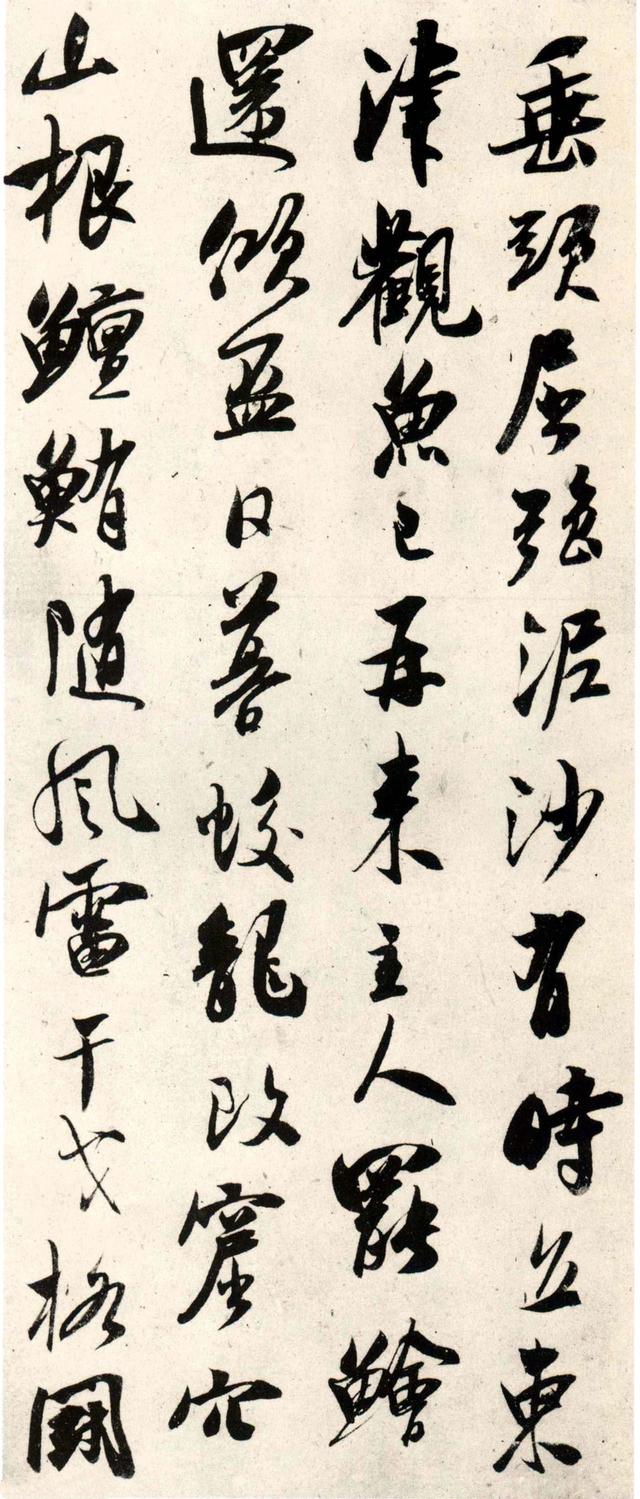 垂頭屈強泥沙有時立東
津觀魚已再來主人罷鱠
還傾盃日暮蛟龍改窟穴
山根鱣鮪随風雷干戈格鬬